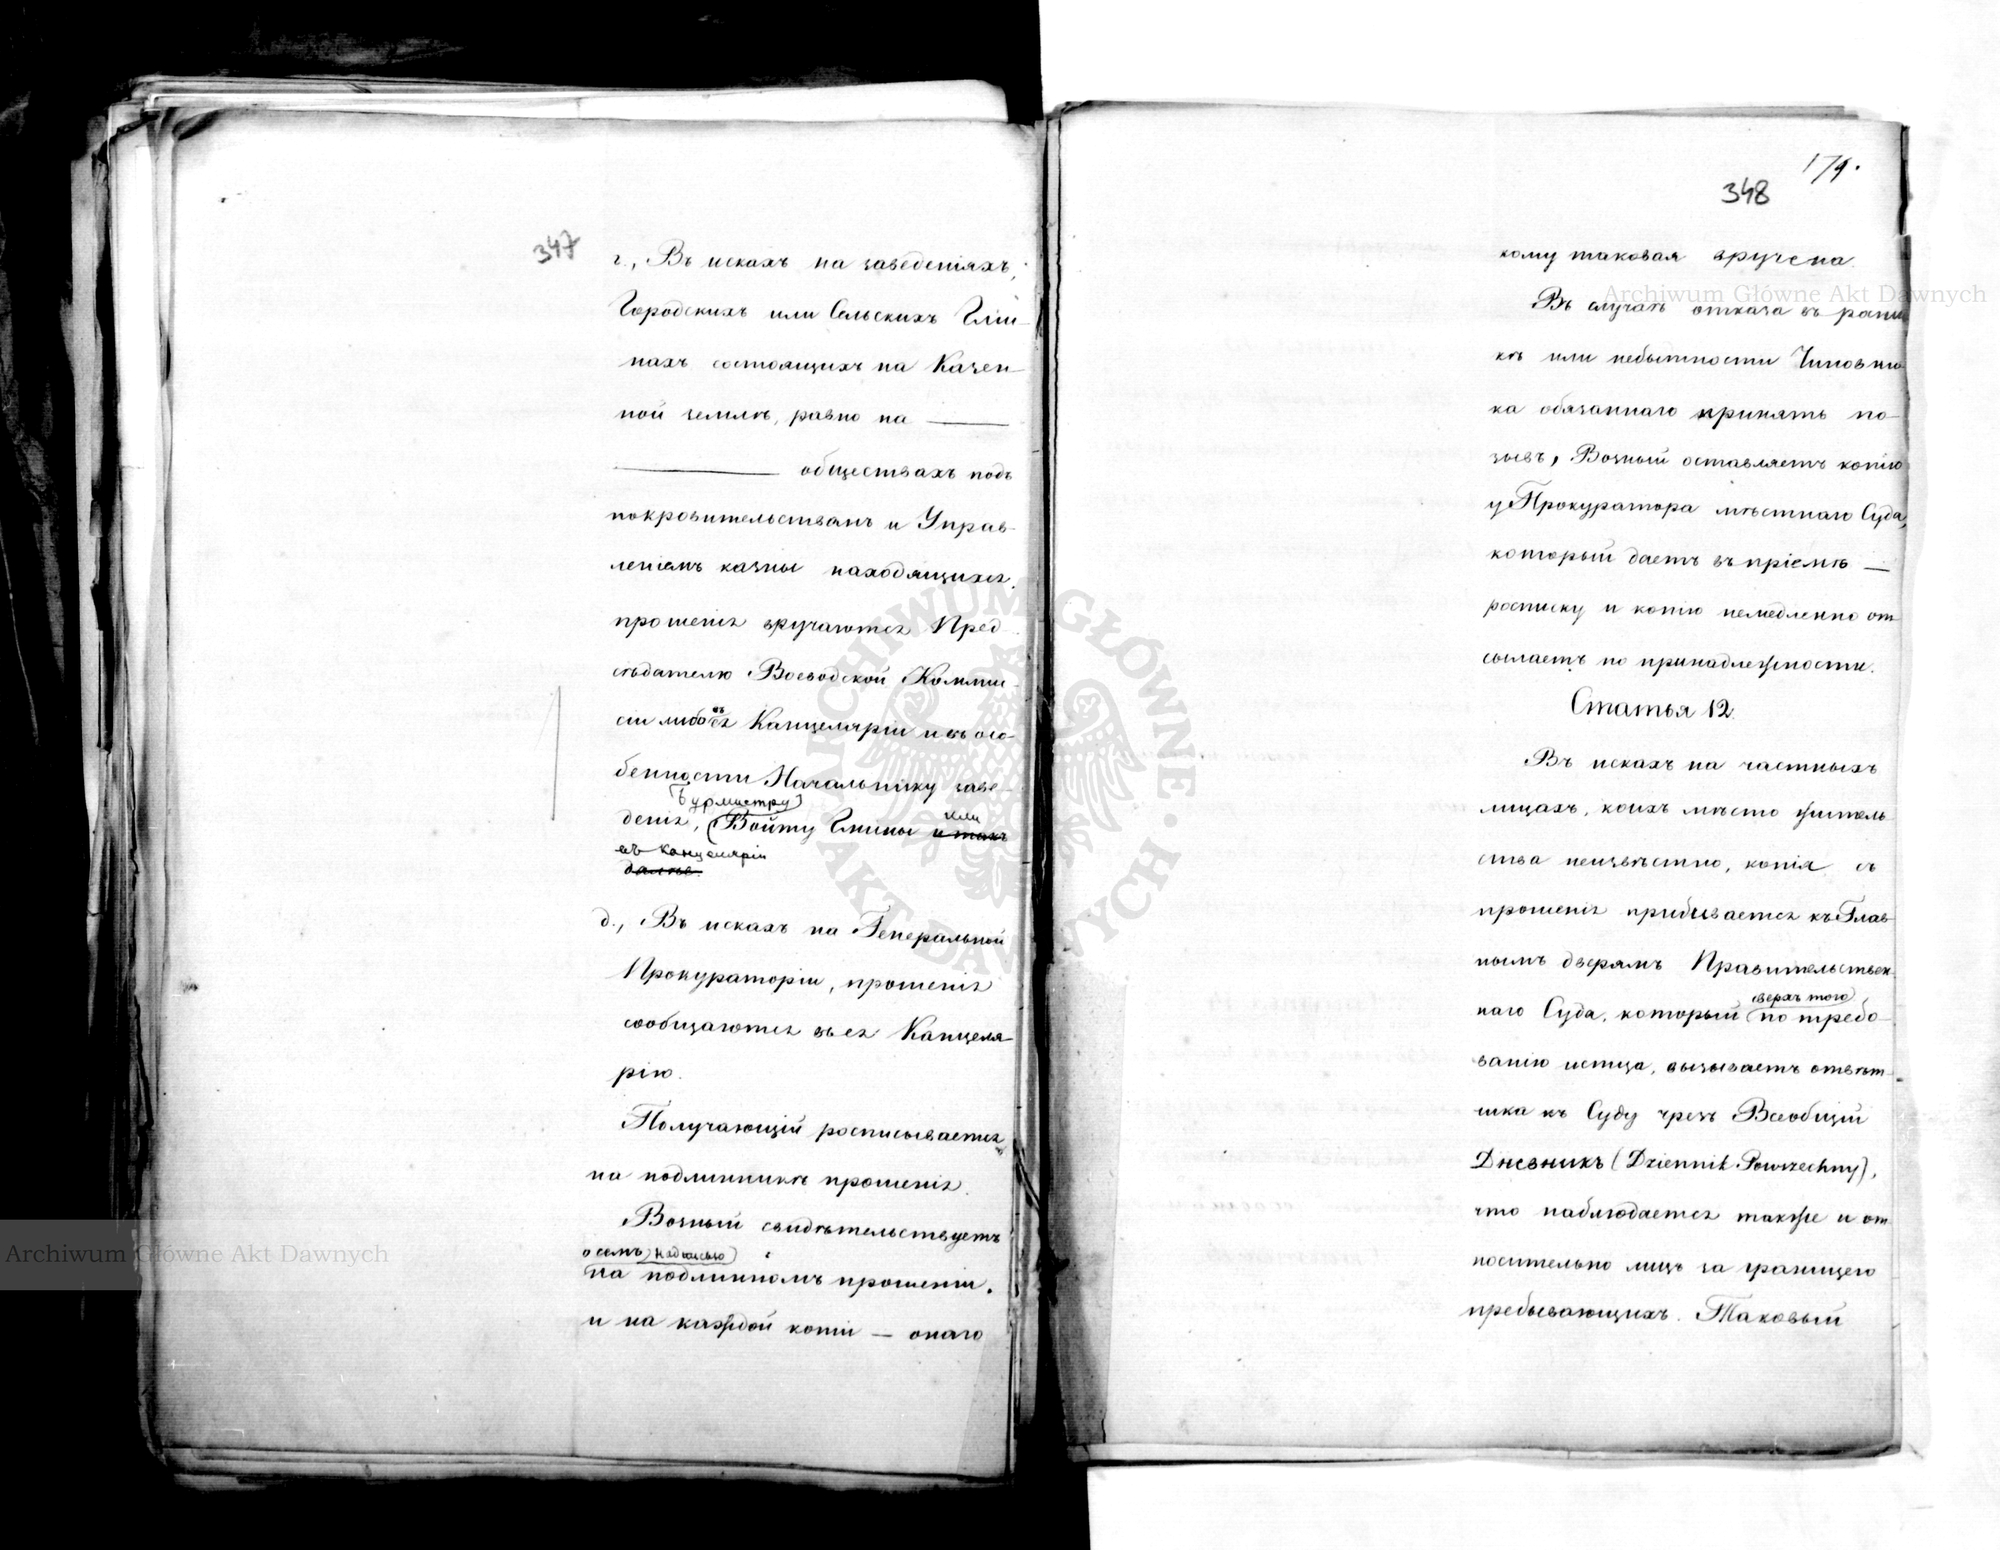 347
г., Въ искахъ на заведенiяхъ,
Городскихъ или Сельскихъ Гми-
нахъ состоящихъ на Казен-
ной землѣ, равно на —
— обществахъ подъ
покровительствамъ и Управ-
ленiемъ казны находящихся,
прошенiя вручаются Пред-
сѣдателю Воеводской Комми-
сiи либо въ ея Канцелярiи и въ осо-
бенности Начальнику заве-
Бурмистру
денiя, Войту Гмины или и такъ
въ Канцелярiи
далѣе.
д., Въ искахъ на Генеральной
Прокураторiи, прошенiя
сообщаются въ ея Канцеля-
рiю.
Получающiй росписывается
на подлинникѣ прошенiя.
Возный свидѣтельствуетъ
о семъ надписью
на подлинномъ прошенiи,
и на каждой копiи — онаго
348
179.
кому таковая вручена.
Въ случаѣ отказа въ роспис-
кѣ или небытности Чиновни-
ка обязаннаго принять по-
зывъ, Возный оставляетъ копiю
у Прокуратора мѣстнаго Суда,
который даетъ въ прiемѣ —
росписку и копiю немедленно от-
сылаетъ по принадлежности.
Статья 12.
Въ искахъ на частныхъ
лицахъ, коихъ мѣсто житель-
ства неизвѣстно, копiя съ
прошенiя прибивается къ Глав-
нымъ дверямъ Правительствен-
наго Суда, который сверхъ того по требо-
ванiю истца, вызываетъ отвѣт-
чика къ Суду чрезъ Всеобщiй
Дневникъ (Dziennik Powszechny),
что наблюдается также и от-
носительно лицъ за границею
пребывающихъ. Таковый
Archiwum Główne Akt Dawnych
Archiwum Główne Akt Dawnych
ARCHIWUM GŁÓWNE AKT DAWNYCH